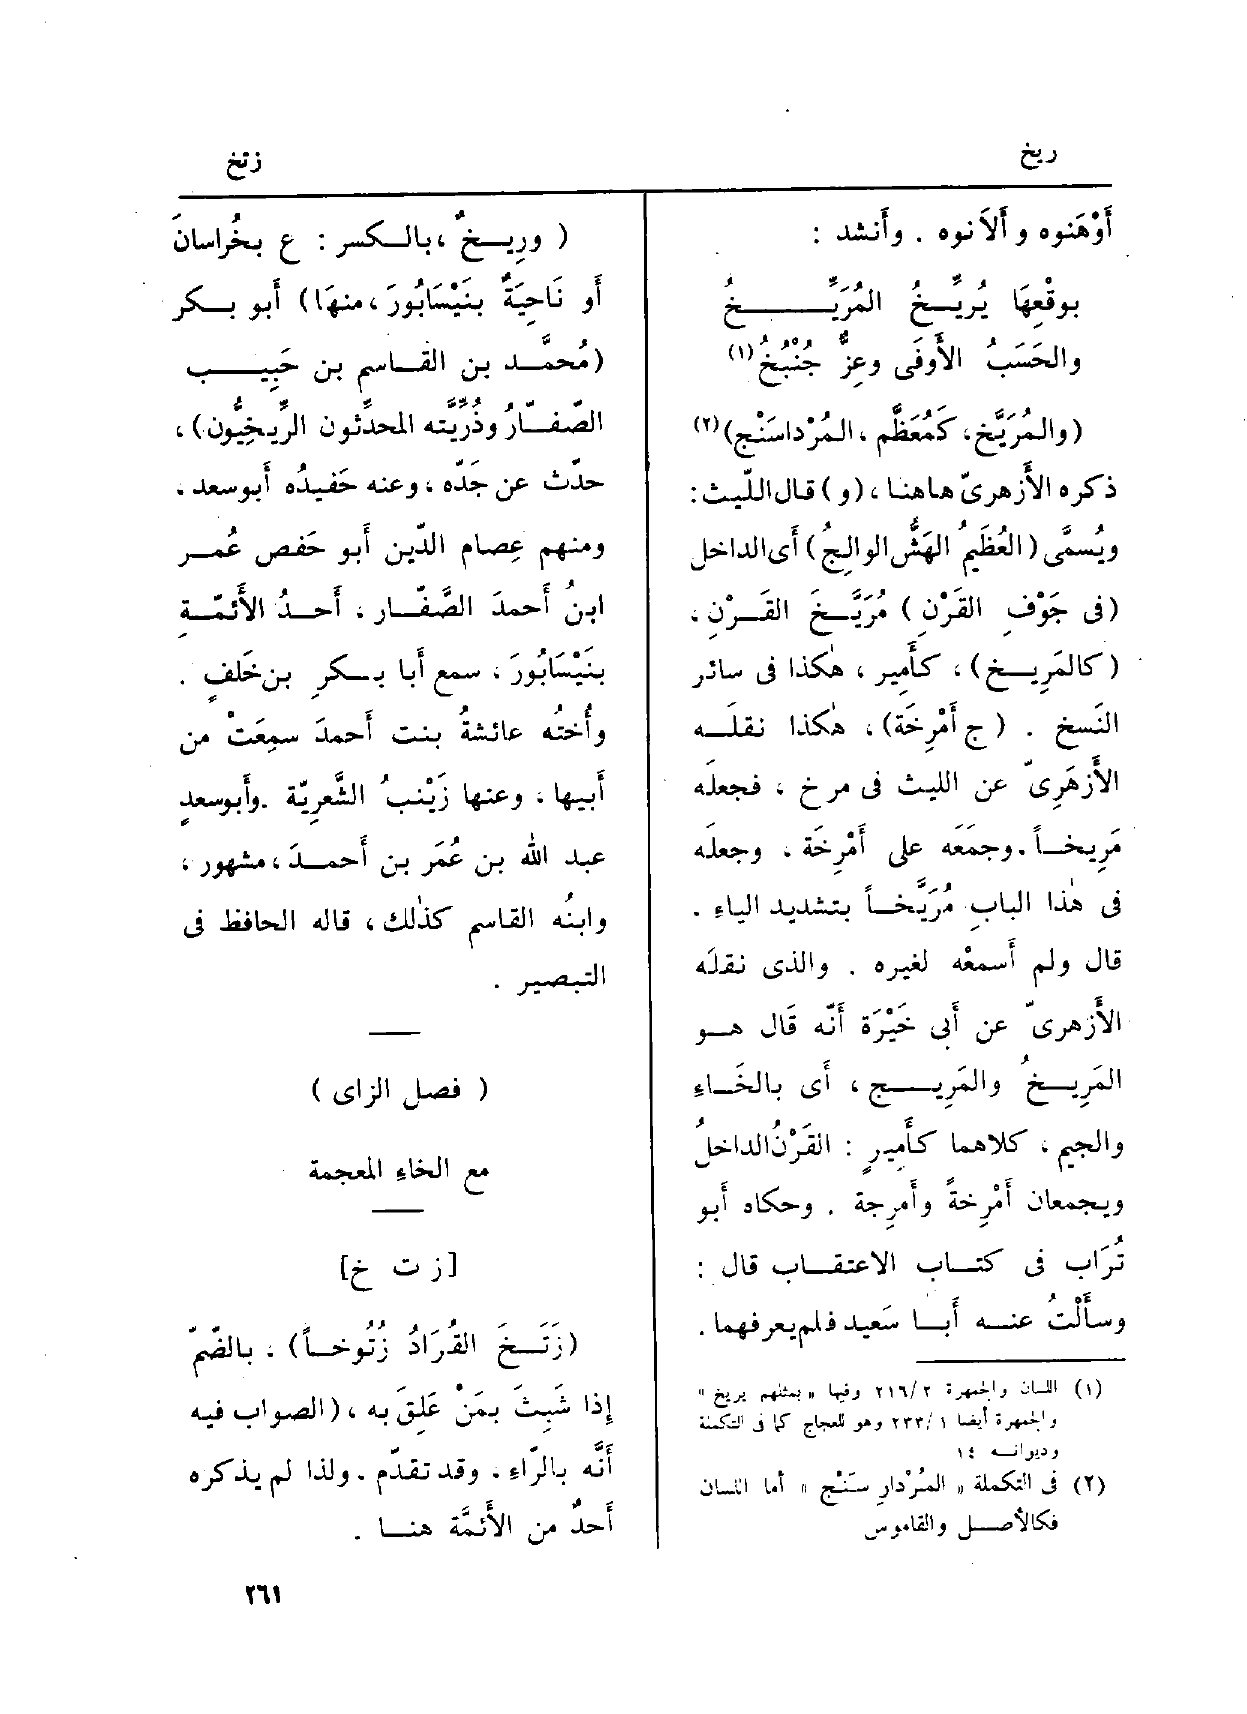 ريخ
زتخ
أَوْهَنوه وأَلَانوه . وأَنشد :
بوقْعِهَا يُريَّخُ المُرَيَّخُ
والحَسَبُ الأَوفَى وعِزٌّ جُنْبُخُ(١)
(والمُرَيَّخ، كَمُعَظَّم ، المُرْداسَنْج)(٢)
ذكره الأَزهرىّ هاهنا ، (و) قال اللّيث :
ويُسمَّى (العُظَيمُ الهَشُّ الوالِجُ) أَى الداخل
(فى جَوْفِ القَرْنِ) مُرَيَّخَ القَرْنِ .
(كالمَرِيخ) ، كأَمِير ، هٰكذا فى سائر
النَّسخ . (ج أَمْرِخَة) ، هٰكذا نقلَه
الأَزهَرىّ عن الليث فى مرخ ، فجعلَه
مَرِيخاً . وجمَعَه على أَمْرِخَة ، وجعلَه
فى هٰذا البابِ مُرَيَّخاً بتشديد الياء .
قال ولم أَسمعْه لغيره . والذى نقلَه
الأَزهرىّ عن أَبى خَيْرَة أَنّه قَال هو
المَرِيخُ والمَرِيج ، أَى بالخَاءِ
والجيم ، كلاهما كأَمِيرٍ : القَرْنُ الداخلُ
ويجمعان أَمْرِخةً وأَمرِجة . وحكاه أَبو
تُرَاب فى كتاب الاعتقاب قال :
وسأَلْتُ عنه أَبا سَعيد فلم يعرفهما .
(١) اللسان والجمهرة ٢١٦/٢ وفيها « بمثلهم يريخ »
والجمهرة أيضا ٢٣٣/١ وهو للعجاج كما فى التكملة
وديوانه ١٤
(٢) فى التكملة « المُرْدارِ سَنْج » أما اللسان
فكالأصل والقاموس
( ورِيخٌ ، بالكسر : ع بخُراسانَ
أَو نَاحِيَةٌ بنَيْسَابُورَ ، منهَا) أَبو بكر
(مُحمَّد بن القاسم بن حَبِيب
الصّفّارُ وذُرِّيّته المحدِّثون الرِّيخِيُّون) ،
حدّث عن جَدّه ، وعنه حَفيدُه أَبو سعد .
ومنهم عِصام الدّين أَبو حَفص عُمر
ابنُ أَحمدَ الصَّفّار ، أَحدُ الأَئمّةِ
بنَيْسَابُورَ ، سمع أَبا بكرِ بن خَلَفٍ .
وأُختُه عائشةُ بنت أَحمدَ سمِعَتْ من
أَبيها ، وعنها زَيْنبُ الشَّعرِيّة . وأَبو سعدٍ
عبد الله بن عُمَر بن أَحمدَ ، مشهور ،
وابنُه القاسم كذٰلك ، قاله الحافظ فى
التبصير .
( فصل الزاى )
مع الخاءِ المعجمة
[ز ت خ]
(زَتَخَ القُرَادُ زُتُوخاً) ، بالضّمّ
إِذا شَبِثَ بمَنْ عَلِقَ به ، (الصواب فيه
أَنَّه بالرّاءِ ، وقد تقدّم . ولذا لم يذكره
أَحدٌ من الأَئمَّة هنا .
٢٦١